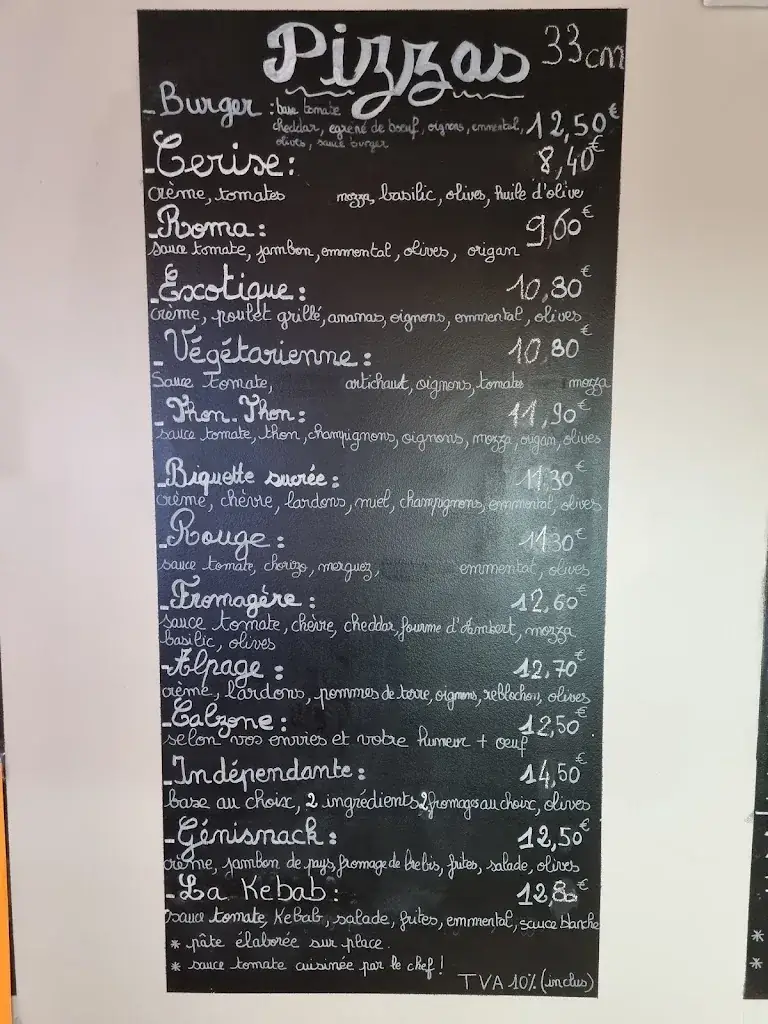 Pizzas 33cm
- Burger : base tomate
cheddar, egréné de boeuf, oignons, emmental, 12,50€
olives, sauce burger
- Cerise : 8,40€
crème, tomates mozza, basilic, olives, huile d'olive
- Roma : 9,60€
sauce tomate, jambon, emmental, olives, origan
- Exotique : 10,80€
crème, poulet grillé, ananas, oignons, emmental, olives
- Végétarienne : 10,80€
Sauce tomate, artichaut, oignons, tomates mozza
- Thon-Thon : 11,90€
sauce tomate, thon, champignons, oignons, mozza, origan, olives
- Biquette sucrée : 11,30€
crème, chèvre, lardons, miel, champignons, emmental, olives
- Rouge : 11,30€
sauce tomate, chorizo, merguez, emmental, olives
- Fromagère : 12,60€
sauce tomate, chèvre, cheddar, fourme d'Ambert, mozza
basilic, olives
- Alpage : 12,70€
crème, lardons, pommes de terre, oignons, reblochon, olives
- Calzone : 12,50€
selon vos envies et votre humeur + oeuf
- Indépendante : 14,50€
base au choix, 2 ingrédients 2 fromages au choix, olives
- Génisnack : 12,50€
crème, jambon de pays, fromage de brebis, frites, salade, olives
- La Kebab : 12,80€
sauce tomate, Kebab, salade, frites, emmental, sauce blanche
* pâte élaborée sur place.
* sauce tomate cuisinée par le chef !
TVA 10% (inclus)